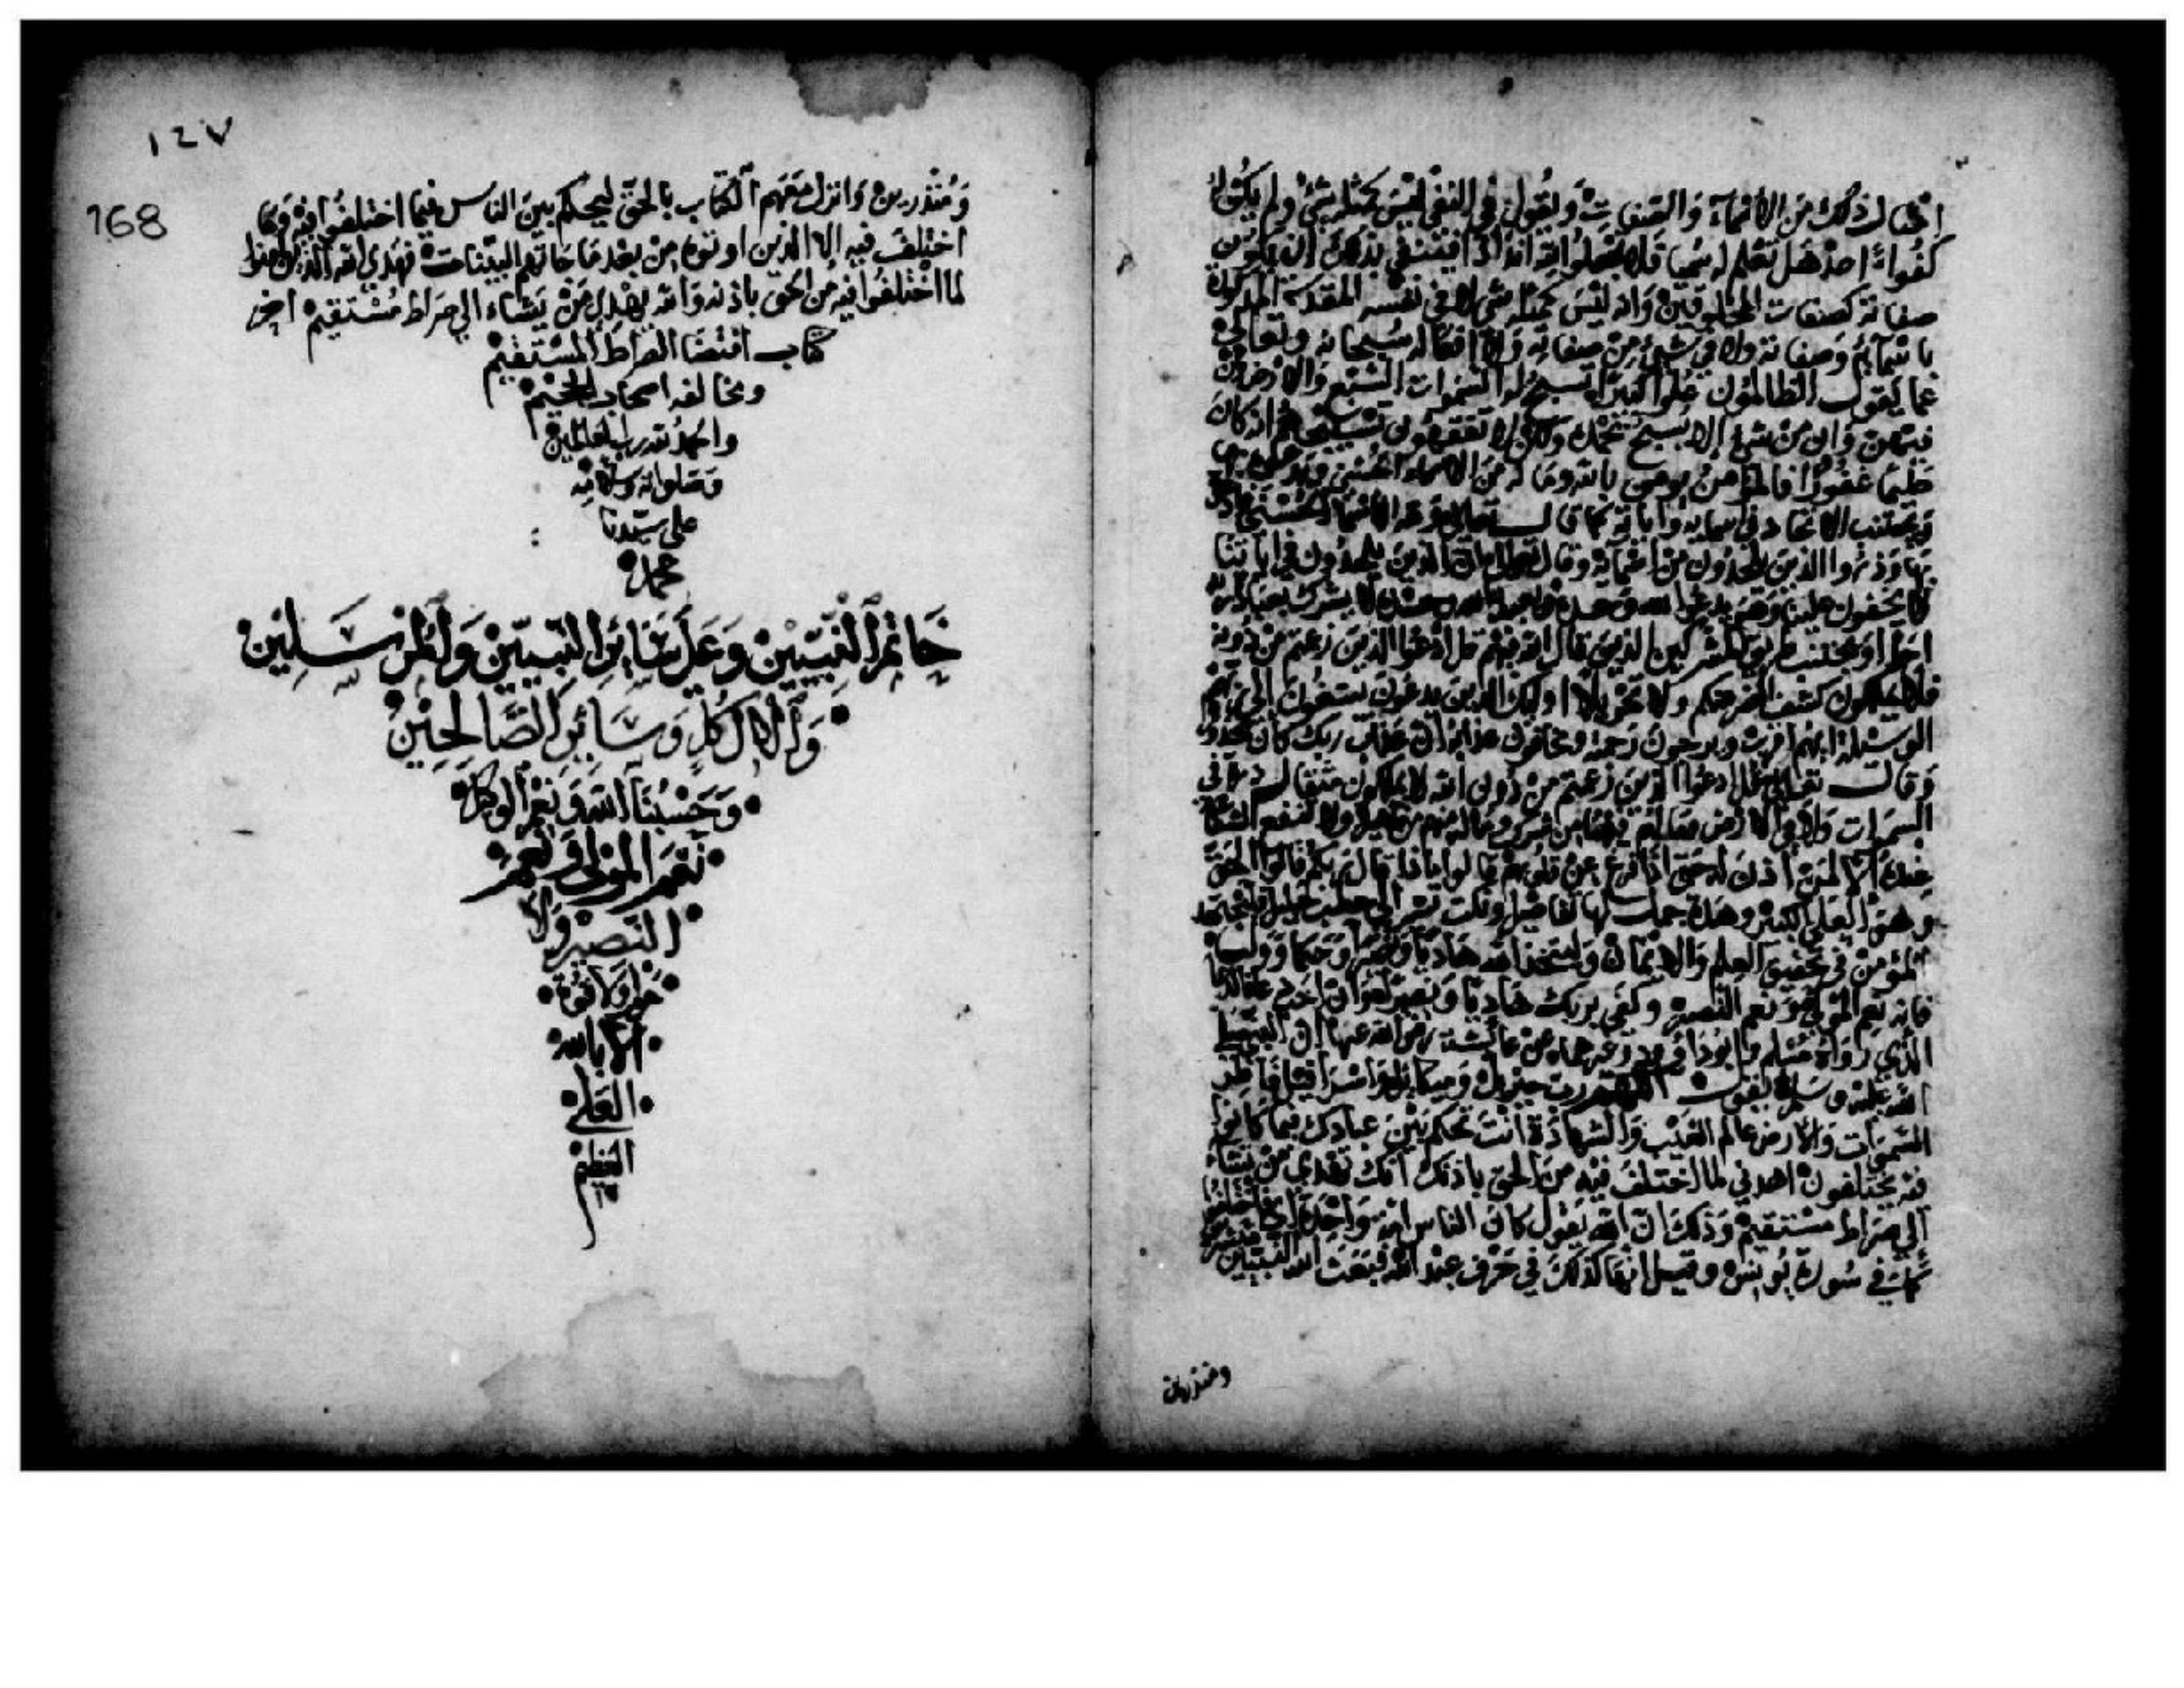 امثال ذلك من الاسماء والصفات ويقول في النفي ليس كمثله شيء ولم يكن له
كفوا احد هل تعلم له سميا فلا تجعلوا لله اندادا فينفي بذلك ان يكون
صفاته كصفات المخلوقين وانه ليس كمثله شيء لا في نفسه المقدسة المذكورة
باسمائه وصفاته ولا في شيء من صفاته ولا افعاله سبحانه وتعالى
عما يقول الظالمون علوا كبيرا تسبح له السموات السبع والارض ومن
فيهن وان من شيء الا يسبح بحمده ولكن لا تفقهون تسبيحهم انه كان
حليما غفورا فالمؤمن يؤمن بالله وما له من الاسماء الحسنى
ويجتنب الالحاد في اسمائه واياته كما قال تعالى ولله الاسماء الحسنى فادعوه
بها وذروا الذين يلحدون في اسمائه وقال تعالى ان الذين يلحدون في اياتنا
لا يخفون علينا وهو يدعو الله وحده لا يشرك بعبادة ربه
احدا ويجتنب طريق المشركين الذين قال الله فيهم قل ادعوا الذين زعمتم من دونه
فلا يملكون كشف الضر عنكم ولا تحويلا اولئك الذين يدعون يبتغون الى ربهم
الوسيلة ايهم اقرب ويرجون رحمته ويخافون عذابه ان عذاب ربك كان محذورا
وقال تعالى قل ادعوا الذين زعمتم من دون الله لا يملكون مثقال ذرة في
السموات ولا في الارض وما لهم فيهما من شرك وما له منهم من ظهير ولا تنفع الشفاعة
عنده الا لمن اذن له حتى اذا فزع عن قلوبهم قالوا ماذا قال ربكم قالوا الحق
وهو العلي الكبير وهذه جمل لها تفاصيل ونكت تشير الى خطب جليل
المؤمن في تحقيق العلم والايمان وليتخذ الله هاديا ونصيرا وحكما ووليا
فانه نعم المولى ونعم النصير وكفى بربك هاديا ونصيرا وان احب دعا بالدعاء
الذي رواه مسلم وابو داود وغيرهما من عائشة رضي الله عنها ان النبي صلى
الله عليه وسلم يقول اللهم رب جبريل وميكائيل واسرافيل فاطر
السموات والارض عالم الغيب والشهادة انت تحكم بين عبادك فيما كانوا
فيه يختلفون اهدني لما اختلف فيه من الحق باذنك انك تهدي من تشاء
الى صراط مستقيم وذلك ان الله يقول كان الناس امة واحدة اي فاختلفوا
كما في سورة يونس وقيل انها كذلك في حرف عبد الله فبعث الله النبيين مبشرين
ومنذرين
١٤٧
168
ومنذرين وانزل معهم الكتاب بالحق ليحكم بين الناس فيما اختلفوا فيه وما
اختلف فيه الا الذين اوتوه من بعد ما جاتهم البينات فهدى الله الذين امنوا
لما اختلفوا فيه من الحق باذنه والله يهدي من يشاء الى صراط مستقيم اخر
كتاب اقتضا الصراط المستقيم
ومخالفة اصحاب الجحيم
والحمد لله رب العالمين
وصلواته وسلامه
على سيدنا
محمد
خاتم النبيين وعلى سائر النبيين والمرسلين
وآل كل وسائر الصالحين
وحسبنا الله ونعم الوكيل
نعم المولى ونعم
النصير ولا
حول ولا قوة
الا بالله
العلي
العظيم